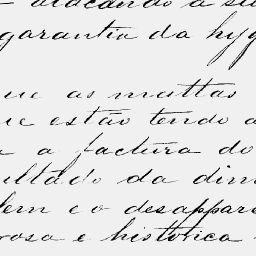 atacando a su
garantia da hyg
que as mattas
ue estão tendo a
a a factura do
ultado da dim
dem e o desappare
rosa e historica